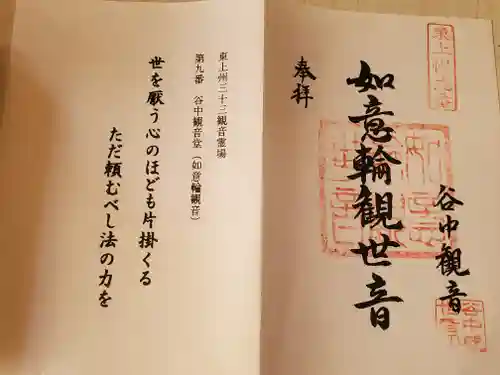 東上州三十三観音霊場
第九番 谷中観音堂(如意輪観音)
世を厭う心のほども片掛くる
ただ頼むべし法の力を
奉拝
如意輪観世音
谷中観音